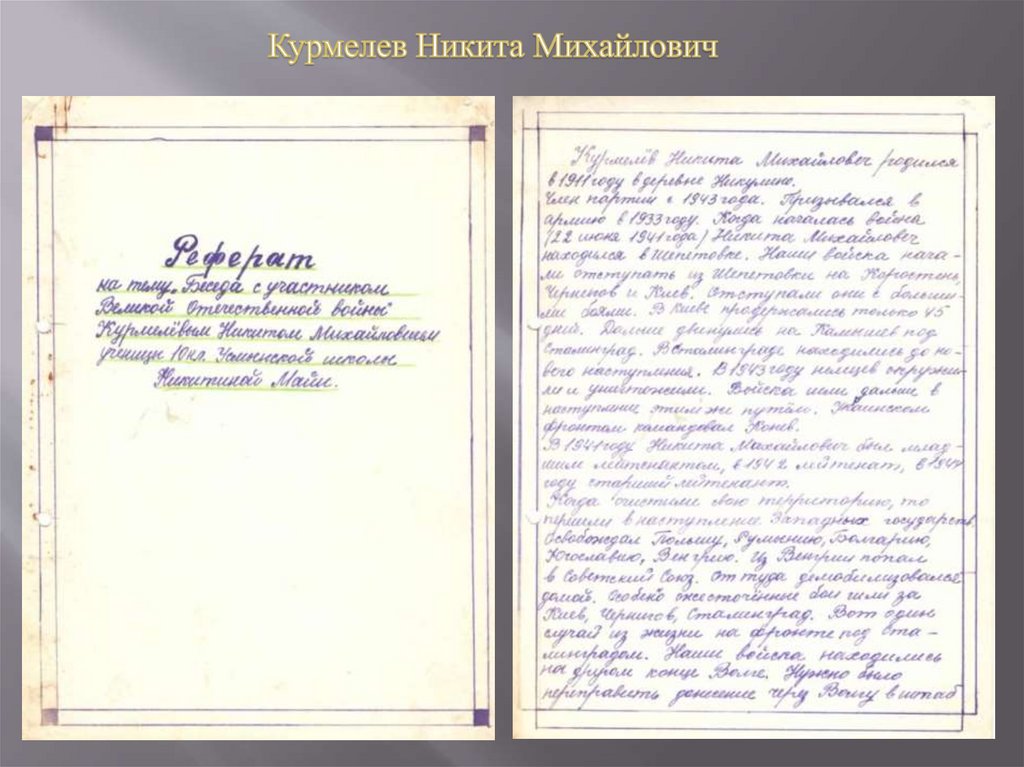 Курмелев Никита Михайлович
Реферат
на тему „Беседа с участником
Великой Отечественной войны
Курмелёвым Никитом Михайловичем
ученицы 10 кл. Усминской школы
Никитиной Майи.
Курмелёв Никита Михайлович родился
в 1911 году в деревне Никулино.
Член партии с 1943 года. Призывался в
армию в 1933 году. Когда началась война
/22 июня 1941 года/ Никита Михайлович
находился в Шепетовке. Наши войска нача-
ли отступать из Шепетовки на Каростень,
Чернигов и Киев. Отступали они с больши-
ми боями. В Киеве продержались только 45
дней. Дальше двинулись на Камышев под
Сталинград. В Сталинграде находились до но-
вого наступления. В 1943 году немцев окружи-
ли и уничтожили. Войска шли дальше в
наступление этим же путём. Украинском
фронтом командовал Конев.
В 1941 году Никита Махайлович был млад-
шим лейтенантом, в 1942 лейтенат, в 1944
году старший лейтенант.
Когда очистили свою территорию, то
перешли в наступление Западных государств,
Освобождал Польшу, Румынию, Болгарию,
Югославию, Венгрию. Из Венгрии попал
в Советский Союз. Оттуда демобилизовался
домой. Особено ожесточённые бои шли за
Киев, Чернигов, Сталинград. Вот один
случай из жизни на фронте под Ста-
линградом. Наши войска находились
на другом конце Волге. Нужно было
переправить донесение через Волгу в штаб